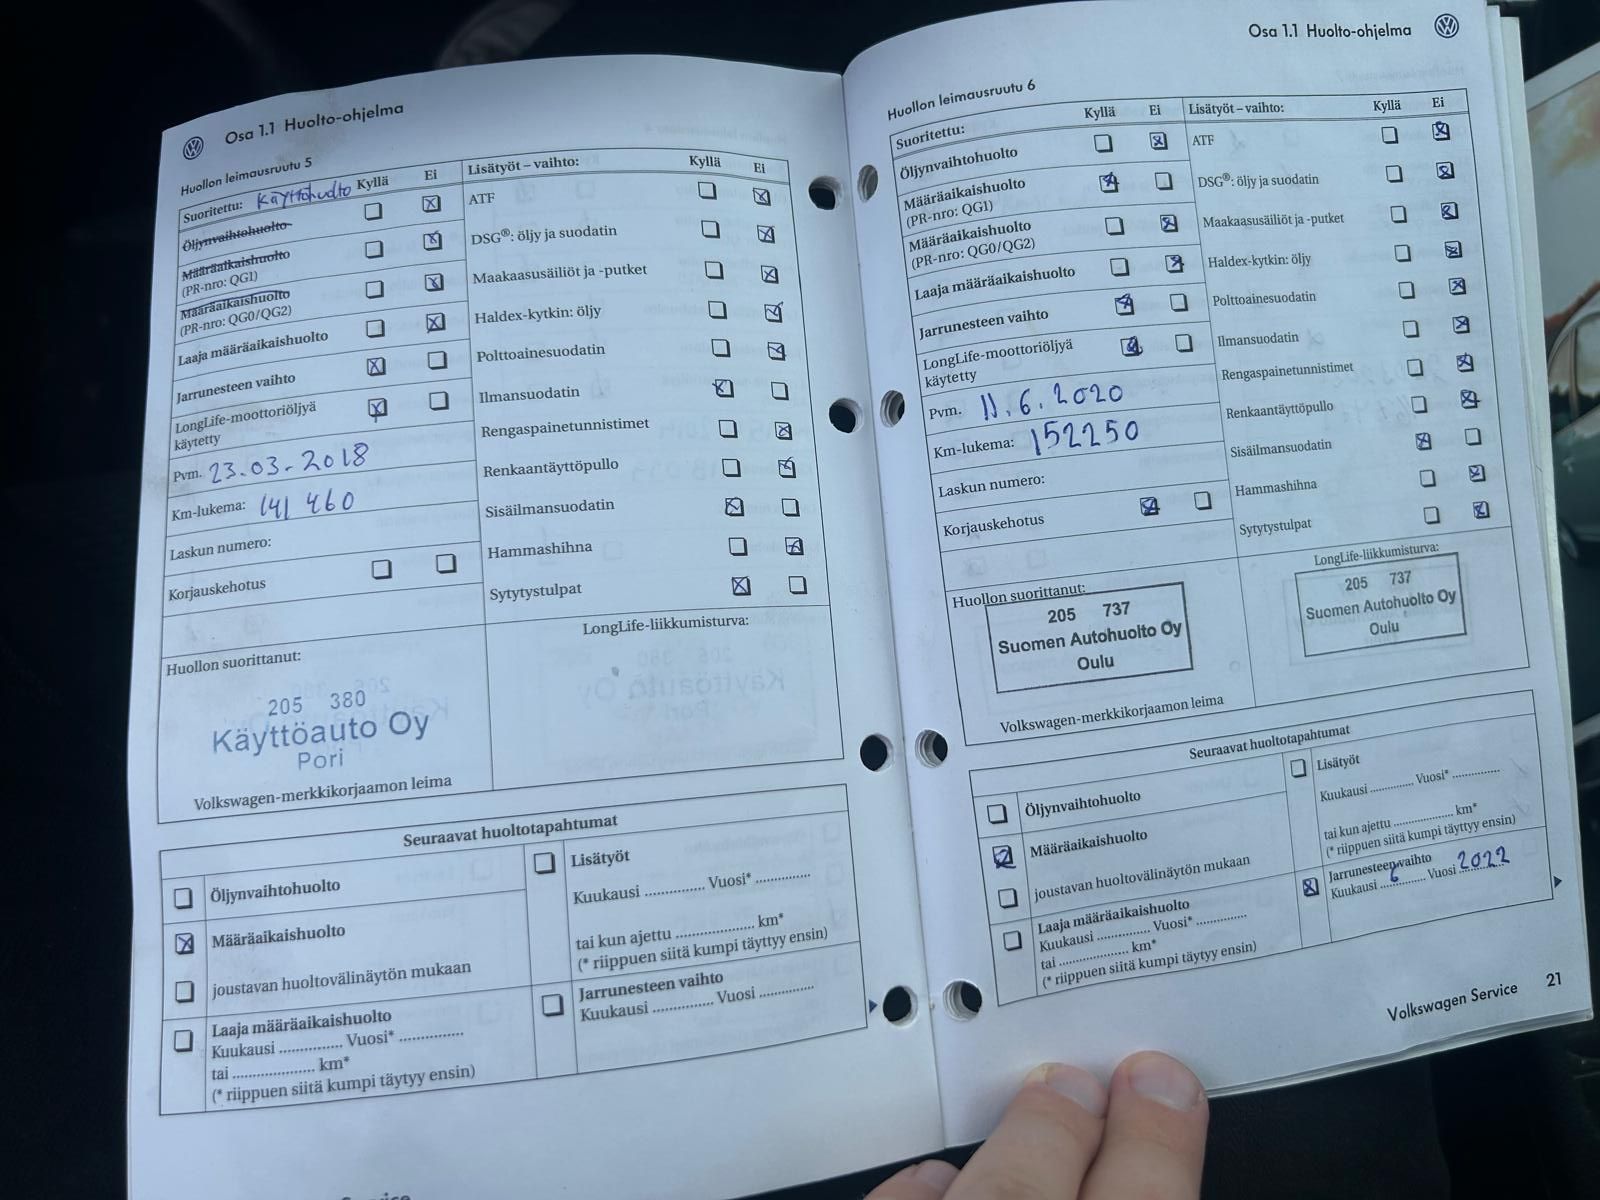 Osa 1.1 Huolto-ohjelma
Huollon leimausruutu 5
Suoritettu: Käyttöhuolto Kyllä Ei
Öljynvaihtohuolto
Määräaikaishuolto
(PR-nro: QG1)
Määräaikaishuolto
(PR-nro: QG0/QG2)
Laaja määräaikaishuolto
Jarrunesteen vaihto
LongLife-moottoriöljyä
käytetty
Pvm. 23.03.2018
Km-lukema: 141 460
Laskun numero:
Korjauskehotus
Lisätyöt – vaihto: Kyllä Ei
ATF
DSG®: öljy ja suodatin
Maakaasusäiliöt ja -putket
Haldex-kytkin: öljy
Polttoainesuodatin
Ilmansuodatin
Rengaspainetunnistimet
Renkaantäyttöpullo
Sisäilmansuodatin
Hammashihna
Sytytystulpat
Huollon suorittanut:
205 380
Käyttöauto Oy
Pori
Volkswagen-merkkikorjaamon leima
LongLife-liikkumisturva:
Seuraavat huoltotapahtumat
Öljynvaihtohuolto
Määräaikaishuolto
joustavan huoltovälinäytön mukaan
Laaja määräaikaishuolto
Kuukausi .............. Vuosi* ..............
tai .................... km*
(* riippuen siitä kumpi täytyy ensin)
Lisätyöt
Kuukausi .............. Vuosi* ..............
tai kun ajettu .................... km*
(* riippuen siitä kumpi täyttyy ensin)
Jarrunesteen vaihto
Kuukausi .............. Vuosi ..............
Osa 1.1 Huolto-ohjelma
Huollon leimausruutu 6
Suoritettu: Kyllä Ei
Öljynvaihtohuolto
Määräaikaishuolto
(PR-nro: QG1)
Määräaikaishuolto
(PR-nro: QG0/QG2)
Laaja määräaikaishuolto
Jarrunesteen vaihto
LongLife-moottoriöljyä
käytetty
Pvm. 11.6.2020
Km-lukema: 152250
Laskun numero:
Korjauskehotus
Lisätyöt – vaihto: Kyllä Ei
ATF
DSG®: öljy ja suodatin
Maakaasusäiliöt ja -putket
Haldex-kytkin: öljy
Polttoainesuodatin
Ilmansuodatin
Rengaspainetunnistimet
Renkaantäyttöpullo
Sisäilmansuodatin
Hammashihna
Sytytystulpat
Huollon suorittanut:
205 737
Suomen Autohuolto Oy
Oulu
Volkswagen-merkkikorjaamon leima
LongLife-liikkumisturva:
205 737
Suomen Autohuolto Oy
Oulu
Seuraavat huoltotapahtumat
Öljynvaihtohuolto
Määräaikaishuolto
joustavan huoltovälinäytön mukaan
Laaja määräaikaishuolto
Kuukausi .............. Vuosi* ..............
tai .................... km*
(* riippuen siitä kumpi täytyy ensin)
Lisätyöt
Kuukausi .............. Vuosi* ..............
tai kun ajettu .................... km*
(* riippuen siitä kumpi täyttyy ensin)
Jarrunesteen vaihto
Kuukausi 6 Vuosi 2022
Volkswagen Service 21